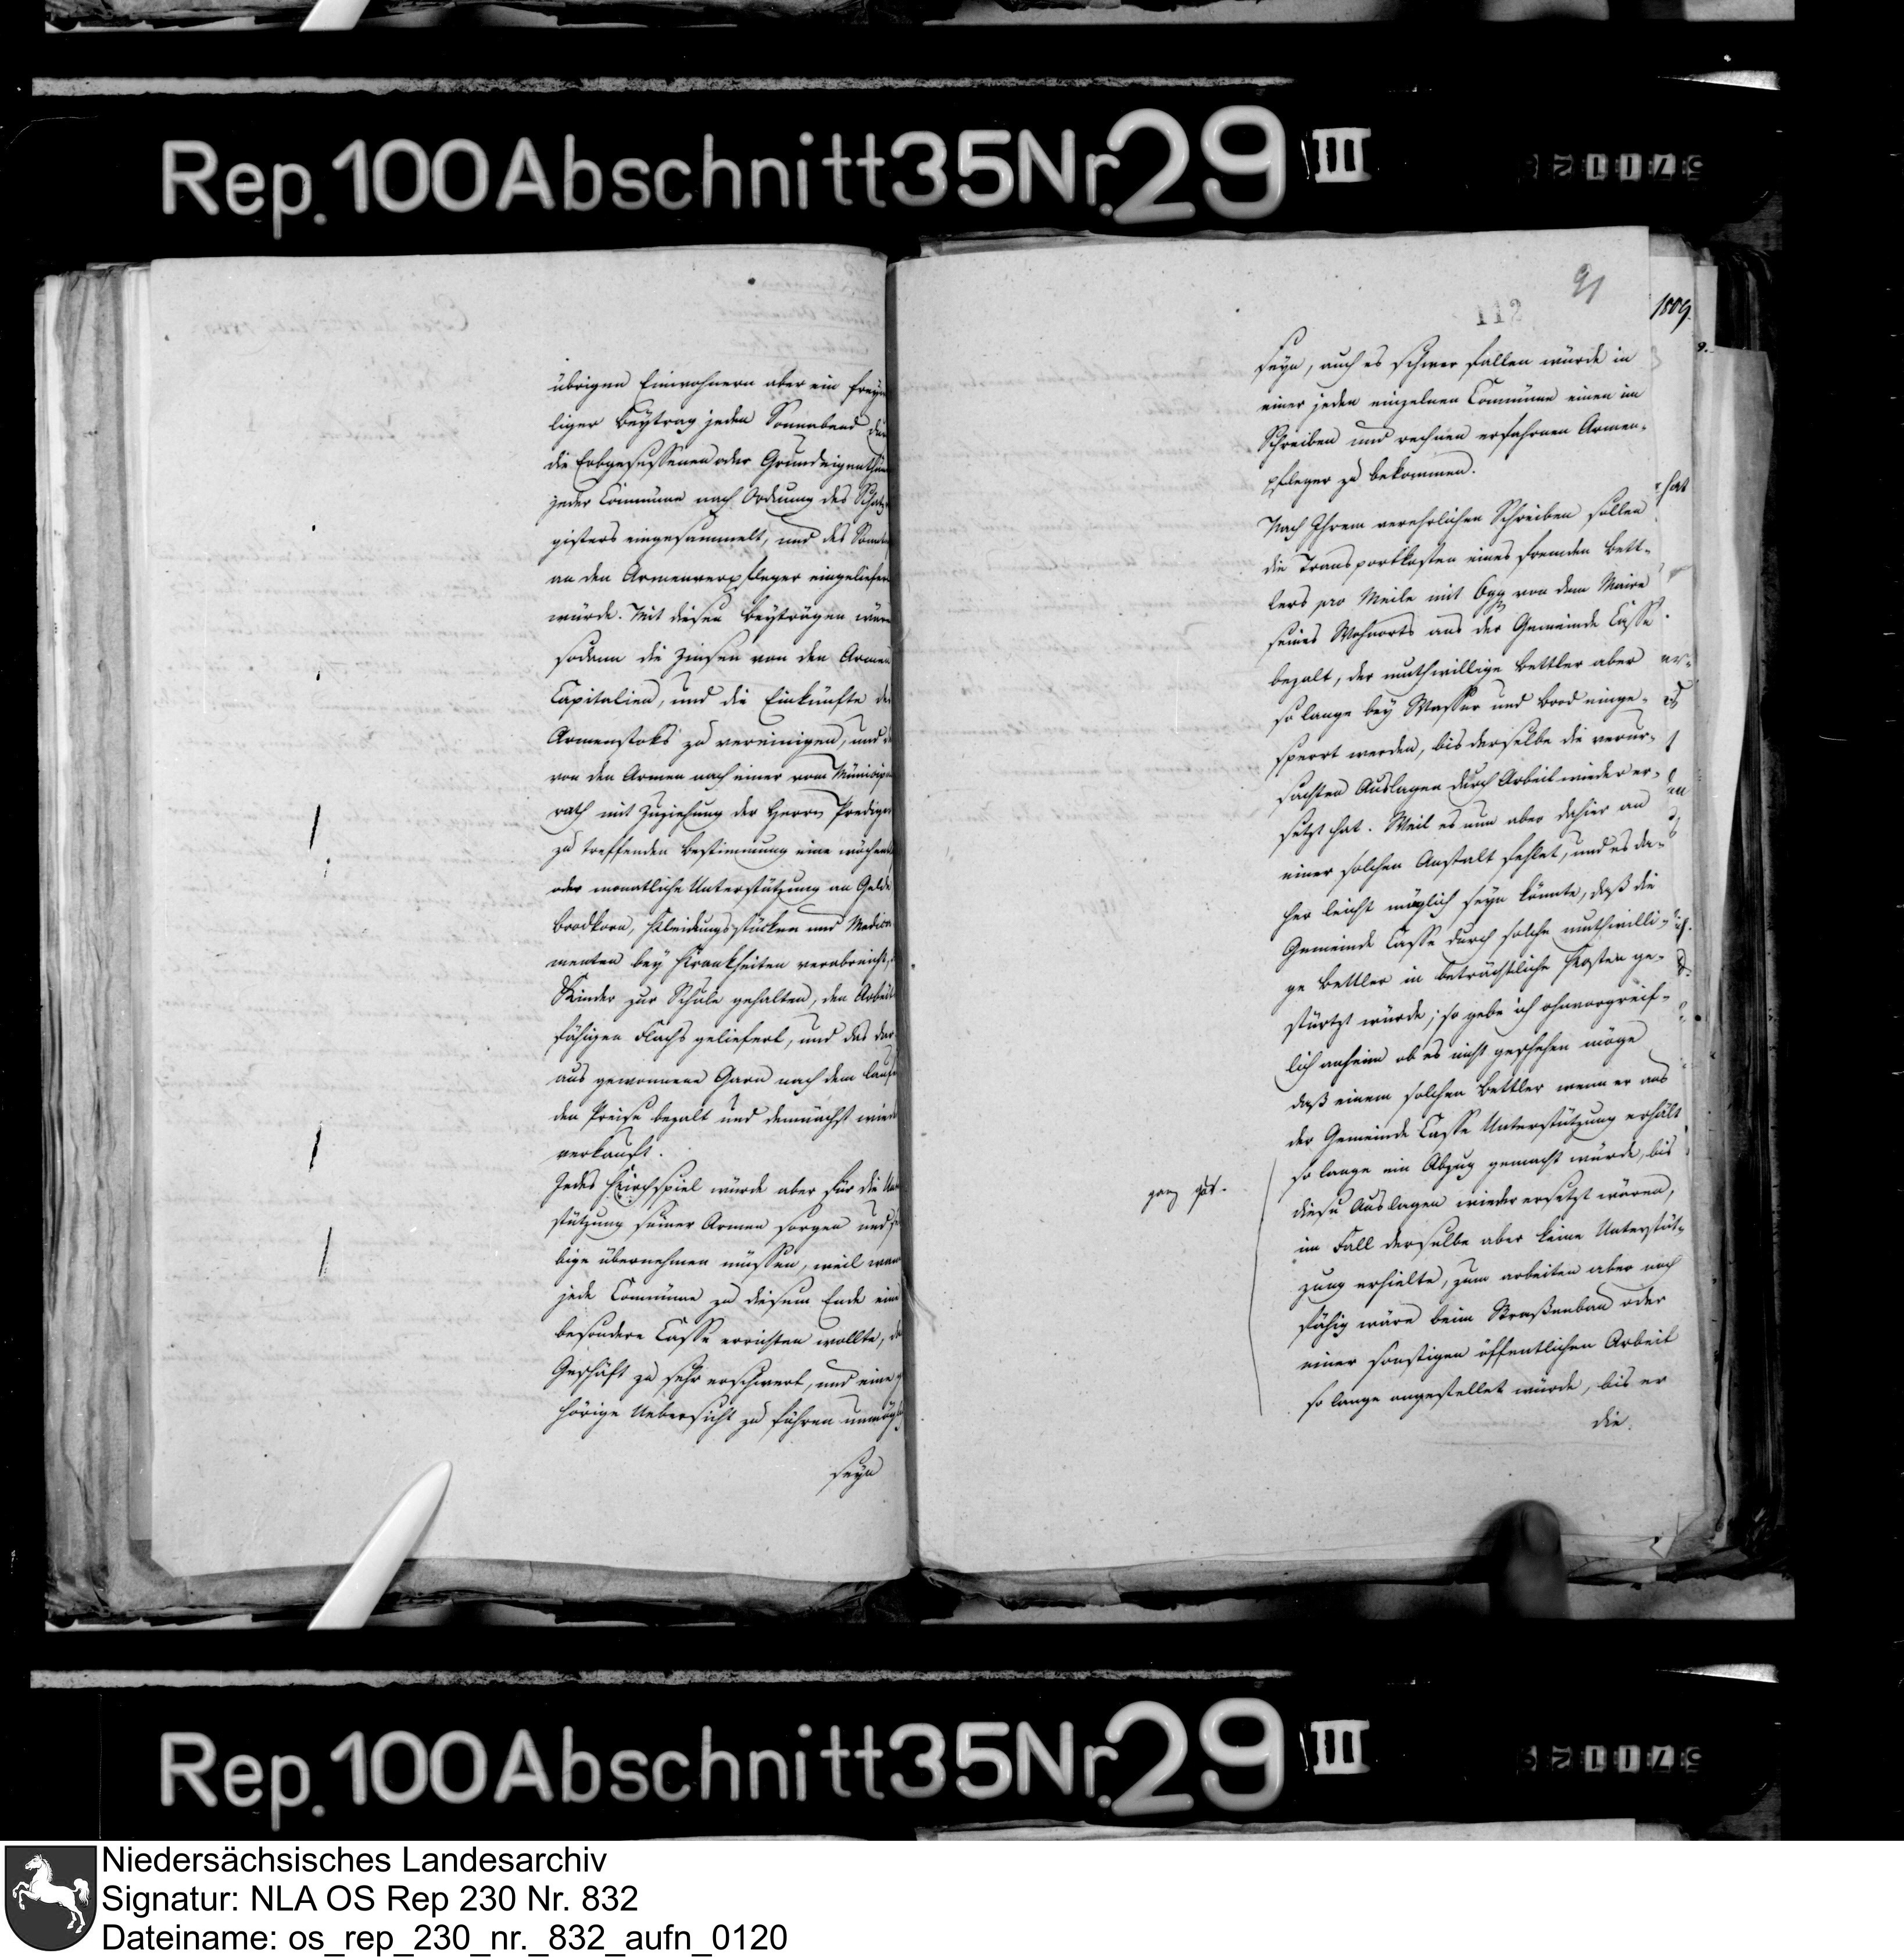 Rep. 100 Abschnitt 35 Nr. 29 III
übrigen Einwohnern aber ein freywil
liger Beytrag jeden Sonnabend durch
die Erbgesessenen oder Grundeigenthüm
jeder Commüne nach Ordnung des Schatz
gisters eingesammelt, und des Sonn
an den Armenverpfleger eingeliefer
würde. Mit diesen Beyträgen wären
sodann die Zinsen von den Armen
Capitalien, und die Einkünfte des
Armenstoks zu vereinigen, und d
von den Armen nach einer vom Municipa
rath mit Zuziehung der Herrn Prediger
zu treffenden Bestimmung eine wöchent
oder monatliche Unterstützung an Gelde
Brodkorn, Kleidungsstücken und Medica
menten bey Krankheiten verabreicht,
Kinder zur Schule gehalten, den Arbeits
fähigen Flachs geliefert, und das dar
aus gewonnene Garn nach dem laufen
den Preise bezalt und demnächst wieder
verkauft.
Jedes Kirchspiel würde aber für die Un
stützung seiner Armen sorgen und sel
bige übernehmen müssen, weil wenn
jede Commüne zu diesem Ende eine
besondere Casse errichten wollte, das
Geschäft zu sehr erschwert, und eine g
hörige Uebersicht zu führen unmögl
seyn
91
112
1809.
seyn, auch es schwer fallen würde in
einer jeden einzelnen Commüne einen im
Schreiben und rechnen erfahrnen Armen-
pfleger zu bekommen.
hat
Nach Ihrem verehrlichen Schreiben sollen
die Transportkosten eines fremden Bett-
lers pro Meile mit 6 ggr von dem Maire
seines Wohnorts aus der Gemeinde Casse
bezalt, der muthwillige Bettler aber
so lange bey Wasser und Brod einge-
sperrt werden, bis derselbe die verur-
sachten Auslagen durch Arbeit wieder er-
setzt hat. Weil es nun aber dahier an
einer solchen Anstalt fehlet, und es da-
her leicht möglich seyn könnte, daß die
Gemeinde Casse durch solche muthwilli-
ge Bettler in beträchtliche Kosten ge-
stürtzt würde; so gebe ich ohnvorgreif-
lich anheim ob es nicht geschehen möge
daß einem solchen Bettler wenn er aus
der Gemeinde Casse Unterstützung erhält
so lange ein Abzug gemacht würde, bis
ganz gut.
diese Auslagen wieder ersetzt wären,
im Fall derselbe aber keine Unterstüt-
zung erhielte, zum arbeiten aber noch
fähig wäre beim Straßenbau oder
einer sonstigen öffentlichen Arbeit
so lange angestellet würde, bis er
die
Rep. 100 Abschnitt 35 Nr. 29 III
Niedersächsisches Landesarchiv
Signatur: NLA OS Rep 230 Nr. 832
Dateiname: os_rep_230_nr._832_aufn_0120